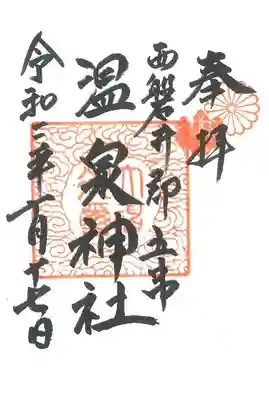 奉拝
西磐井郡五串
温泉神社
令和二年 月十七日